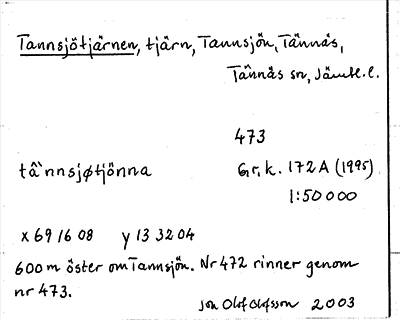 Tannsjötjärnen, tjärn, Tannsjön, Tännäs,
Tännäs sn, Jämtl. l.
473
tâ`nnsjøtjönna Gr. k. 172 A (1995)
1:50 000
x 69 16 08 y 13 32 04
600 m öster om Tannsjön. Nr 472 rinner genom
nr 473.
Jon Olof Olofsson 2003